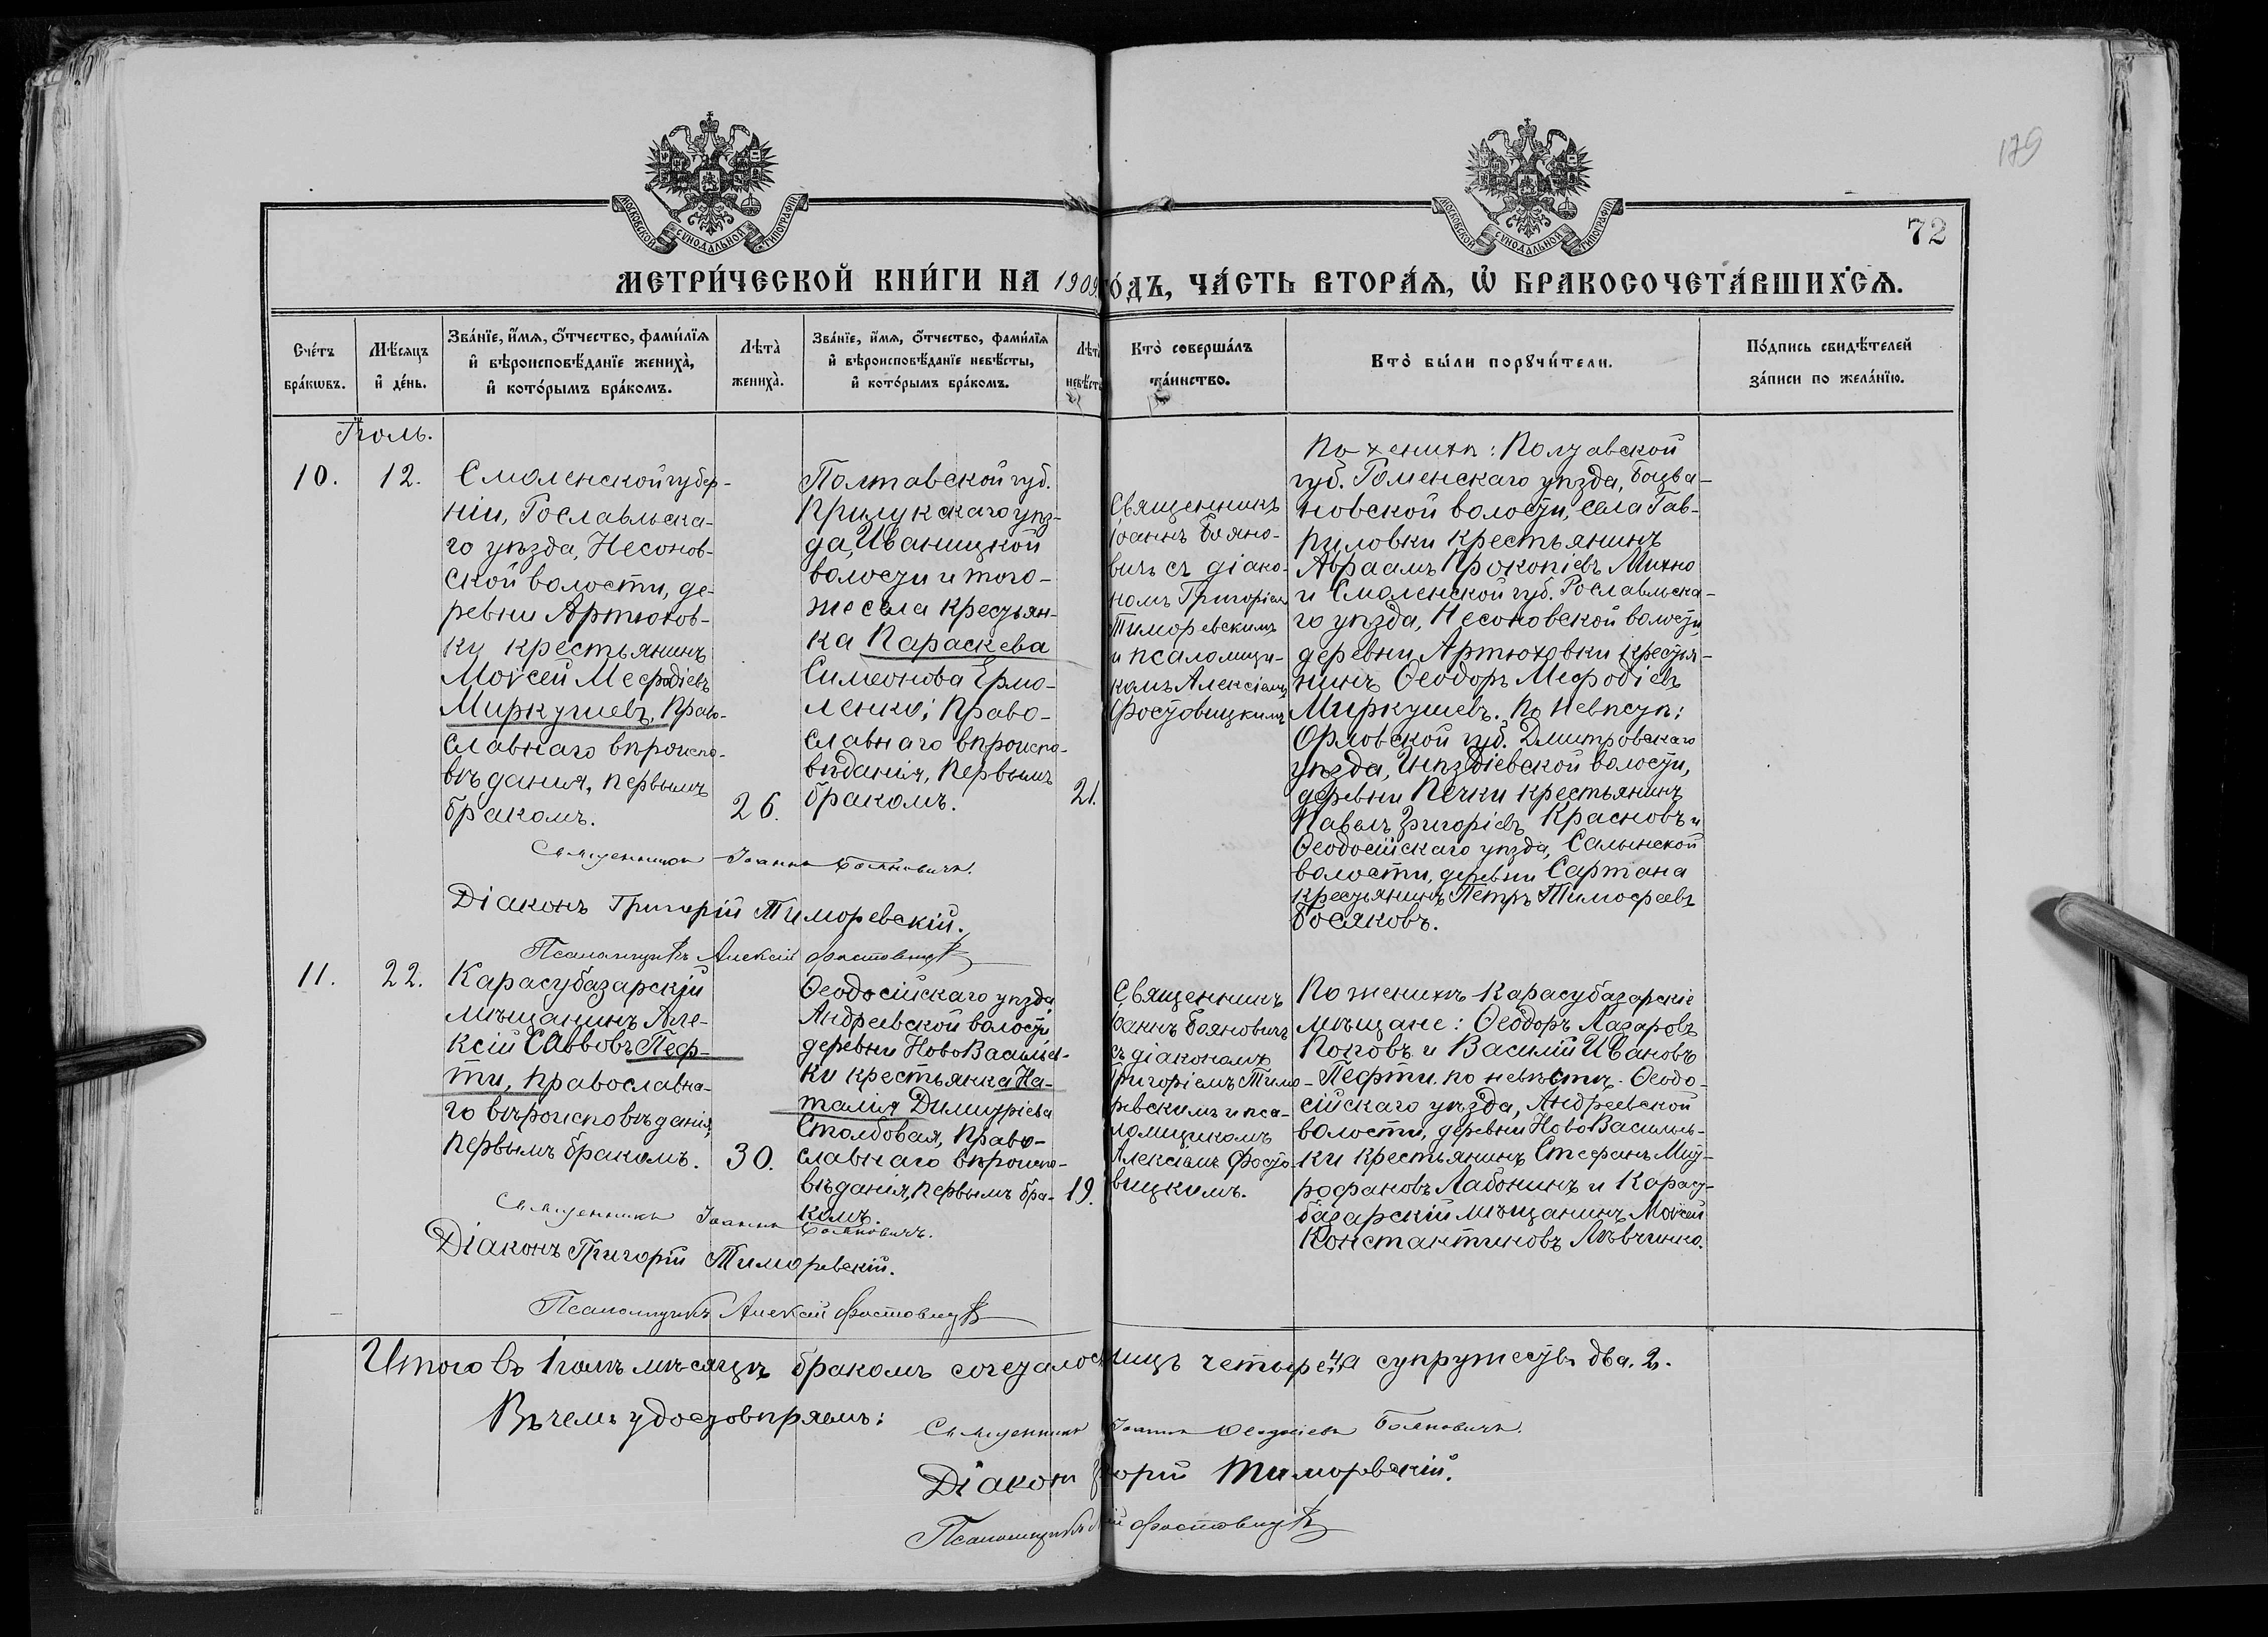 179
МОСКОВСКОЙ СѴНОДАЛЬНОЙ ТИПОГРАФІИ
МОСКОВСКОЙ СѴНОДАЛЬНОЙ ТИПОГРАФІИ
72
МЕТРИ́ЧЕСКОЙ КНИ́ГИ НА 1909 ГО́ДЪ, ЧА́СТЬ ВТОРА́Ѧ, Ѽ БРАКОСОЧЕТА́ВШИХСѦ.
Сче́тъ
бра́кѡвъ.
Мѣ́сяцъ
и҆ де́нь.
Зва́нїе, и҆́мѧ, ѻ҆́тчество, фами́лїѧ
и҆ вѣроисповѣ́данїе жениха̀,
и҆ кото́рымъ бра́комъ.
Лѣта̀
жениха̀.
Зва́нїе, и҆́мѧ, ѻ҆́тчество, фами́лїѧ
и҆ вѣроисповѣ́данїе невѣ́сты,
и҆ кото́рымъ бра́комъ.
Лѣта̀
невѣ́сты
Кто̀ соверша́лъ
та́инство.
Кто̀ бы́ли порꙋчи́тели.
По́дпись свидѣ́телей
за́писи по жела́нїю.
Іюль.
10.
12.
Смоленской губер-
ніи, Рославльска-
го уѣзда, Несонов-
ской волости, де-
ревни Артюхов-
ки крестьянинъ
Моѵсей Меѳодіевъ
Миркушевъ, Право-
славнаго вѣроиспо-
вѣданія, первымъ
бракомъ.
26.
Полтавской губ.
Прилукскаго уѣз-
да, Иваницкой
волости и того-
же села крестьян-
ка Параскева
Симеонова Ермо-
ленко; Право-
славнаго вѣроиспо-
вѣданія, первымъ
бракомъ.
21.
Священникъ
Іоаннъ Бояно-
вичъ съ діако-
номъ Григоріемъ
Тиморевскимъ
и псаломщи-
комъ Алексіемъ
Фостовицкимъ
По женихѣ: Полтавской
губ. Роменскаго уѣзда, Боцва-
новской волости, села Гав-
риловки крестьянинъ
Авраамъ Прокопіевъ Михно
и Смоленской губ. Рославльска-
го уѣзда, Несоновской волости,
деревни Артюховки крестья-
нинъ Ѳеодоръ Меѳодіевъ
Миркушевъ. По невѣстѣ:
Орловской губ. Дмитровскаго
уѣзда, Гнѣздіевской волости,
деревни Печки крестьянинъ
Павелъ Григоріевъ Красновъ и
Ѳеодосійскаго уѣзда, Салынской
волости, деревни Сартана
крестьянинъ Петръ Тимоѳеевъ
Босяковъ.
Священникъ Іоаннъ Бояновичъ.
Діаконъ Григорій Тиморевскій.
Псаломщикъ Алексій Фостовицкій
11.
22.
Карасубазарскій
мѣщанинъ Але-
ксій Саввовъ Пеф-
ти, Православна-
го вѣроисповѣданія,
первымъ бракомъ.
30.
Ѳеодосійскаго уѣзда,
Андреевской волости
деревни НовоВасильев-
ки крестьянка На-
талія Димитріева
Столбовая, Право-
славнаго вѣроиспо-
вѣданія, первымъ бра-
комъ.
19.
Священникъ
Іоаннъ Бояновичъ
съ діакономъ
Григоріемъ Тимо-
ревскимъ и пса-
ломщикомъ
Алексіемъ Фосто-
вицкимъ.
По женихѣ Карасубазарскіе
мѣщане: Ѳеодоръ Лазаровъ
Поповъ и Василій Ивановъ
Пефти. по невѣстѣ: Ѳеодо-
сійскаго уѣзда, Андреевской
волости, деревни НовоВасильев-
ки крестьянинъ Стефанъ Мит-
рофановъ Лабонинъ и Карасу-
базарскій мѣщанинъ Моѵсей
Константиновъ Лѣвчинко.
Священникъ Іоаннъ Бояновичъ.
Діаконъ Григорій Тиморевскій.
Псаломщикъ Алексій Фостовицкій
Итого въ Іюлѣ мѣсяцѣ бракомъ сочеталось лицъ четыре 4, а супружествъ два. 2.
Въ чемъ удостовѣряемъ:
Священникъ Іоаннъ Ѳеодосіевъ Бояновичъ.
Діакон горій Тиморевскій.
Псаломщикъ ій Фостовицкій